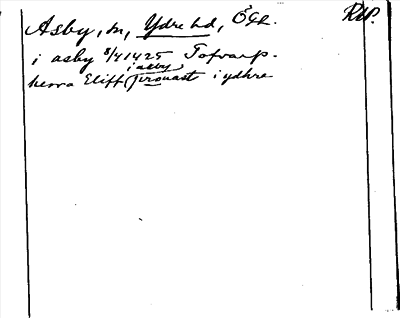 Asby, sn, Ydre hd, ÖGL. RAP.
i asby 8/4 1425 Tofvarp.
i asby
herra Eliff (prouast i ydhre